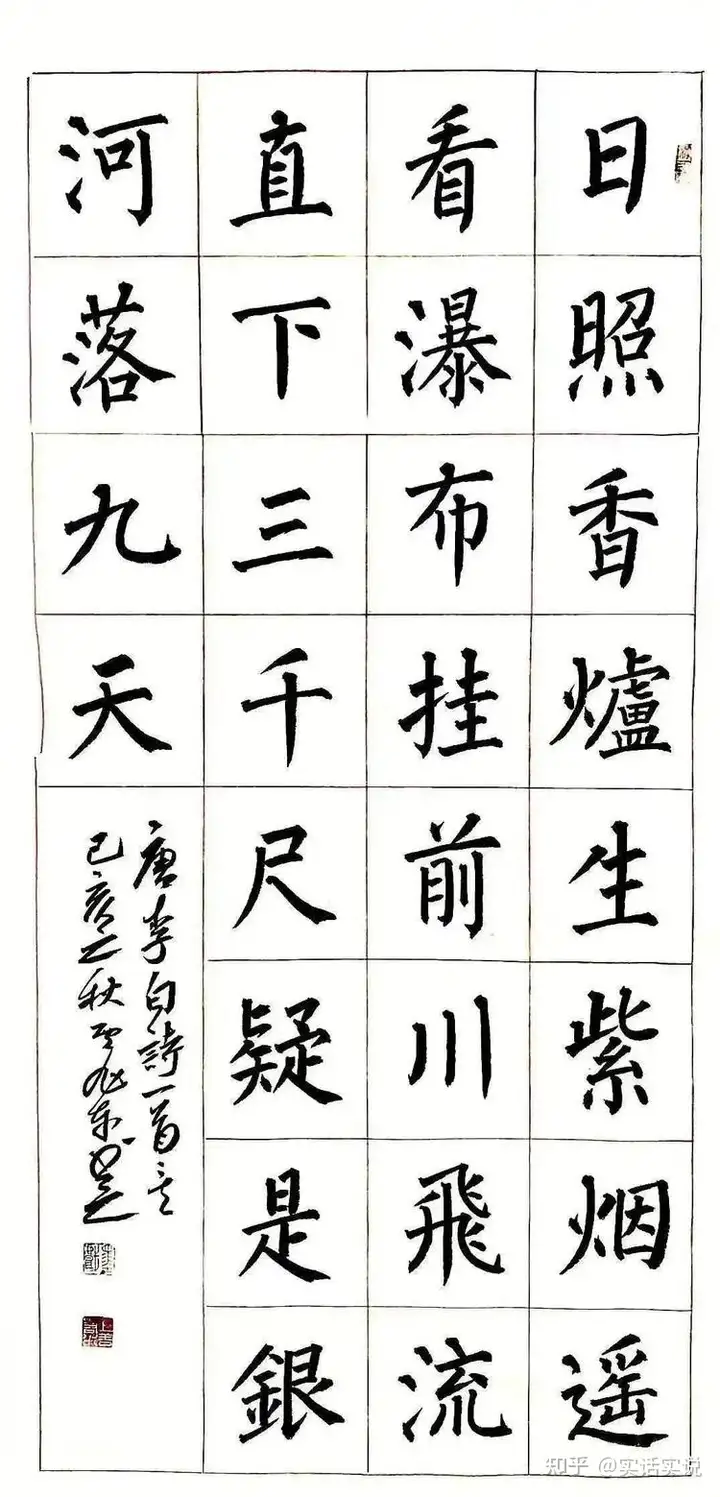 日照香爐生紫烟遥
看瀑布挂前川飛流
直下三千尺疑是銀
河落九天
唐李白詩一首
己亥之秋
知乎 @实话实说